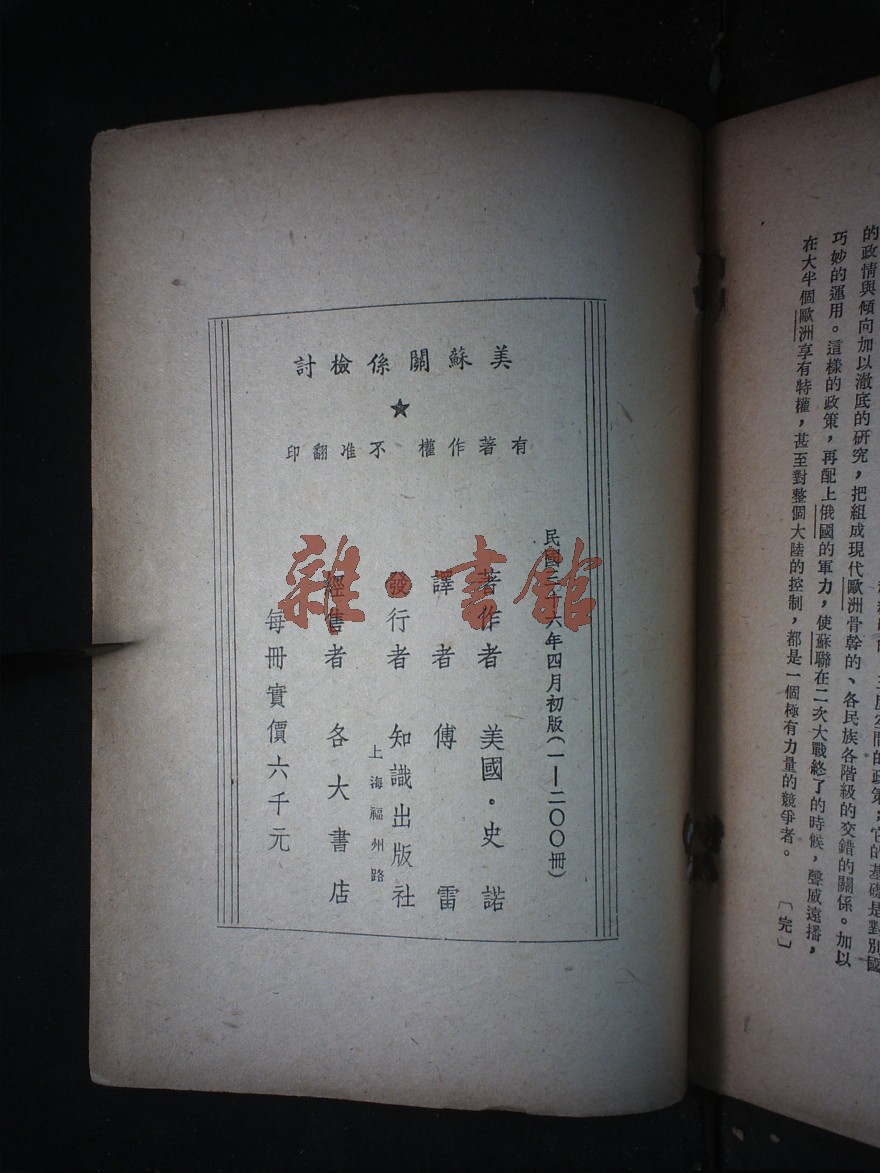 的政情與傾向加以澈底的研究，把組成現代歐洲骨幹的、各民族各階級的交錯的關係。加以
巧妙的運用。這樣的政策，再配上俄國的軍力，使蘇聯在二次大戰終了的時候，聲威遠播，
在大半個歐洲享有特權，甚至對整個大陸的控制，都是一個極有力量的競爭者。 〔完〕
美蘇關係檢討
★
有著作權 不准翻印
民國三十六年四月初版(一—二〇〇冊)
著作者 美國·史諾
譯者 傅雷
發行者 知識出版社
上海福州路
經售者 各大書店
每冊實價六千元
雜·書館